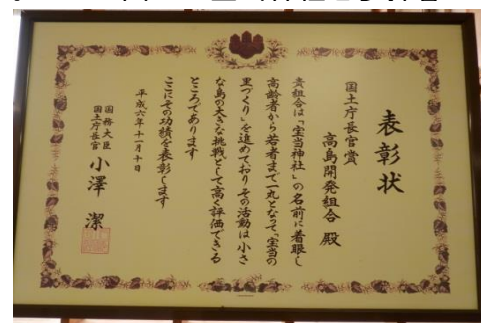 表彰状
国土庁長官賞
高島開発組合 殿
貴組合は「宝当神社」の名前に着眼し
高齢者から若者まで一丸となって、宝当の
里づくり」を進めておりその活動は小さ
な島の大きな挑戦として高く評価できる
ところであります
ここにその功績を表彰します
平成六年十一月十日
国務大臣
国土庁長官 小澤 潔